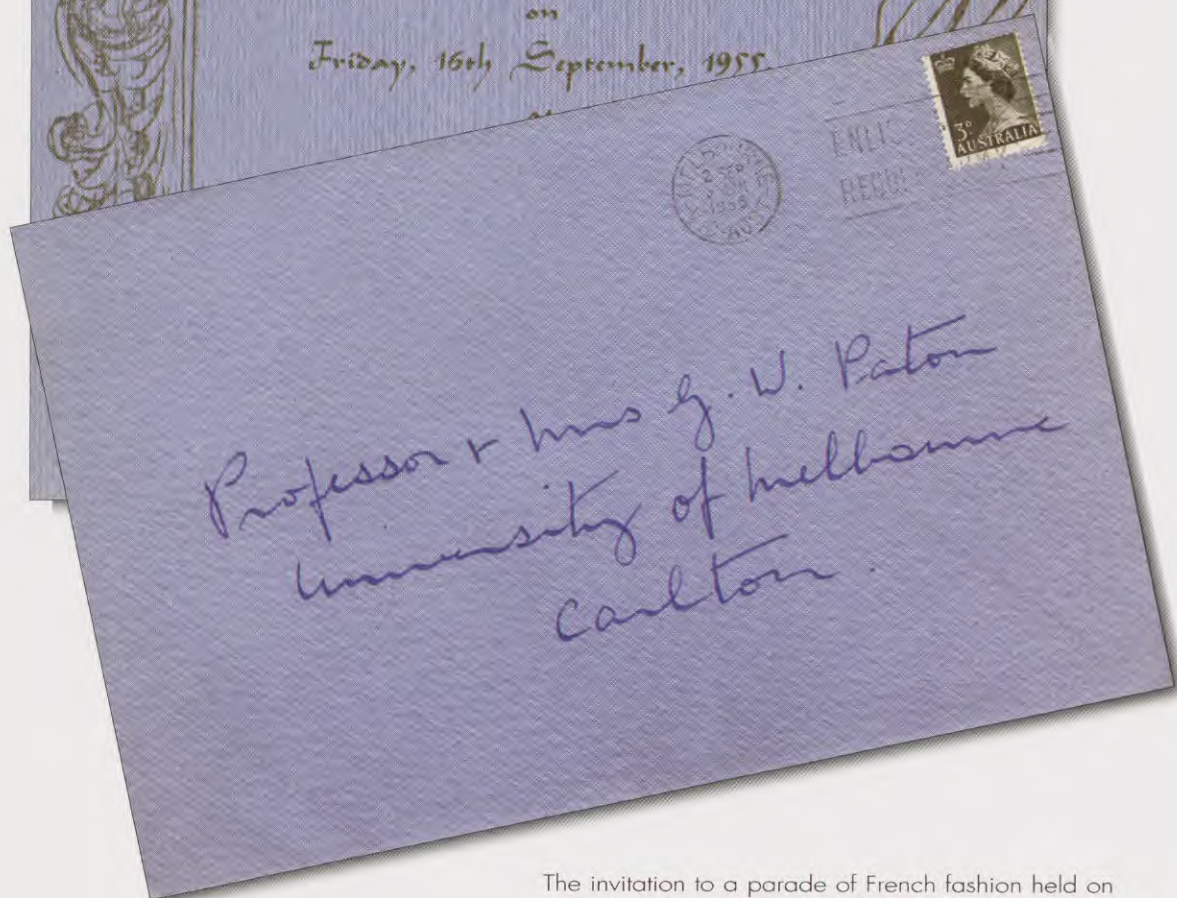 on
Friday, 16th September, 1955
MELBOURNE
2 SEP
1955
AUST
ENLIS
REQUI
3D
AUSTRALIA
Professor & Mrs G. W. Paton
University of Melbourne
Carlton.
The invitation to a parade of French fashion held on